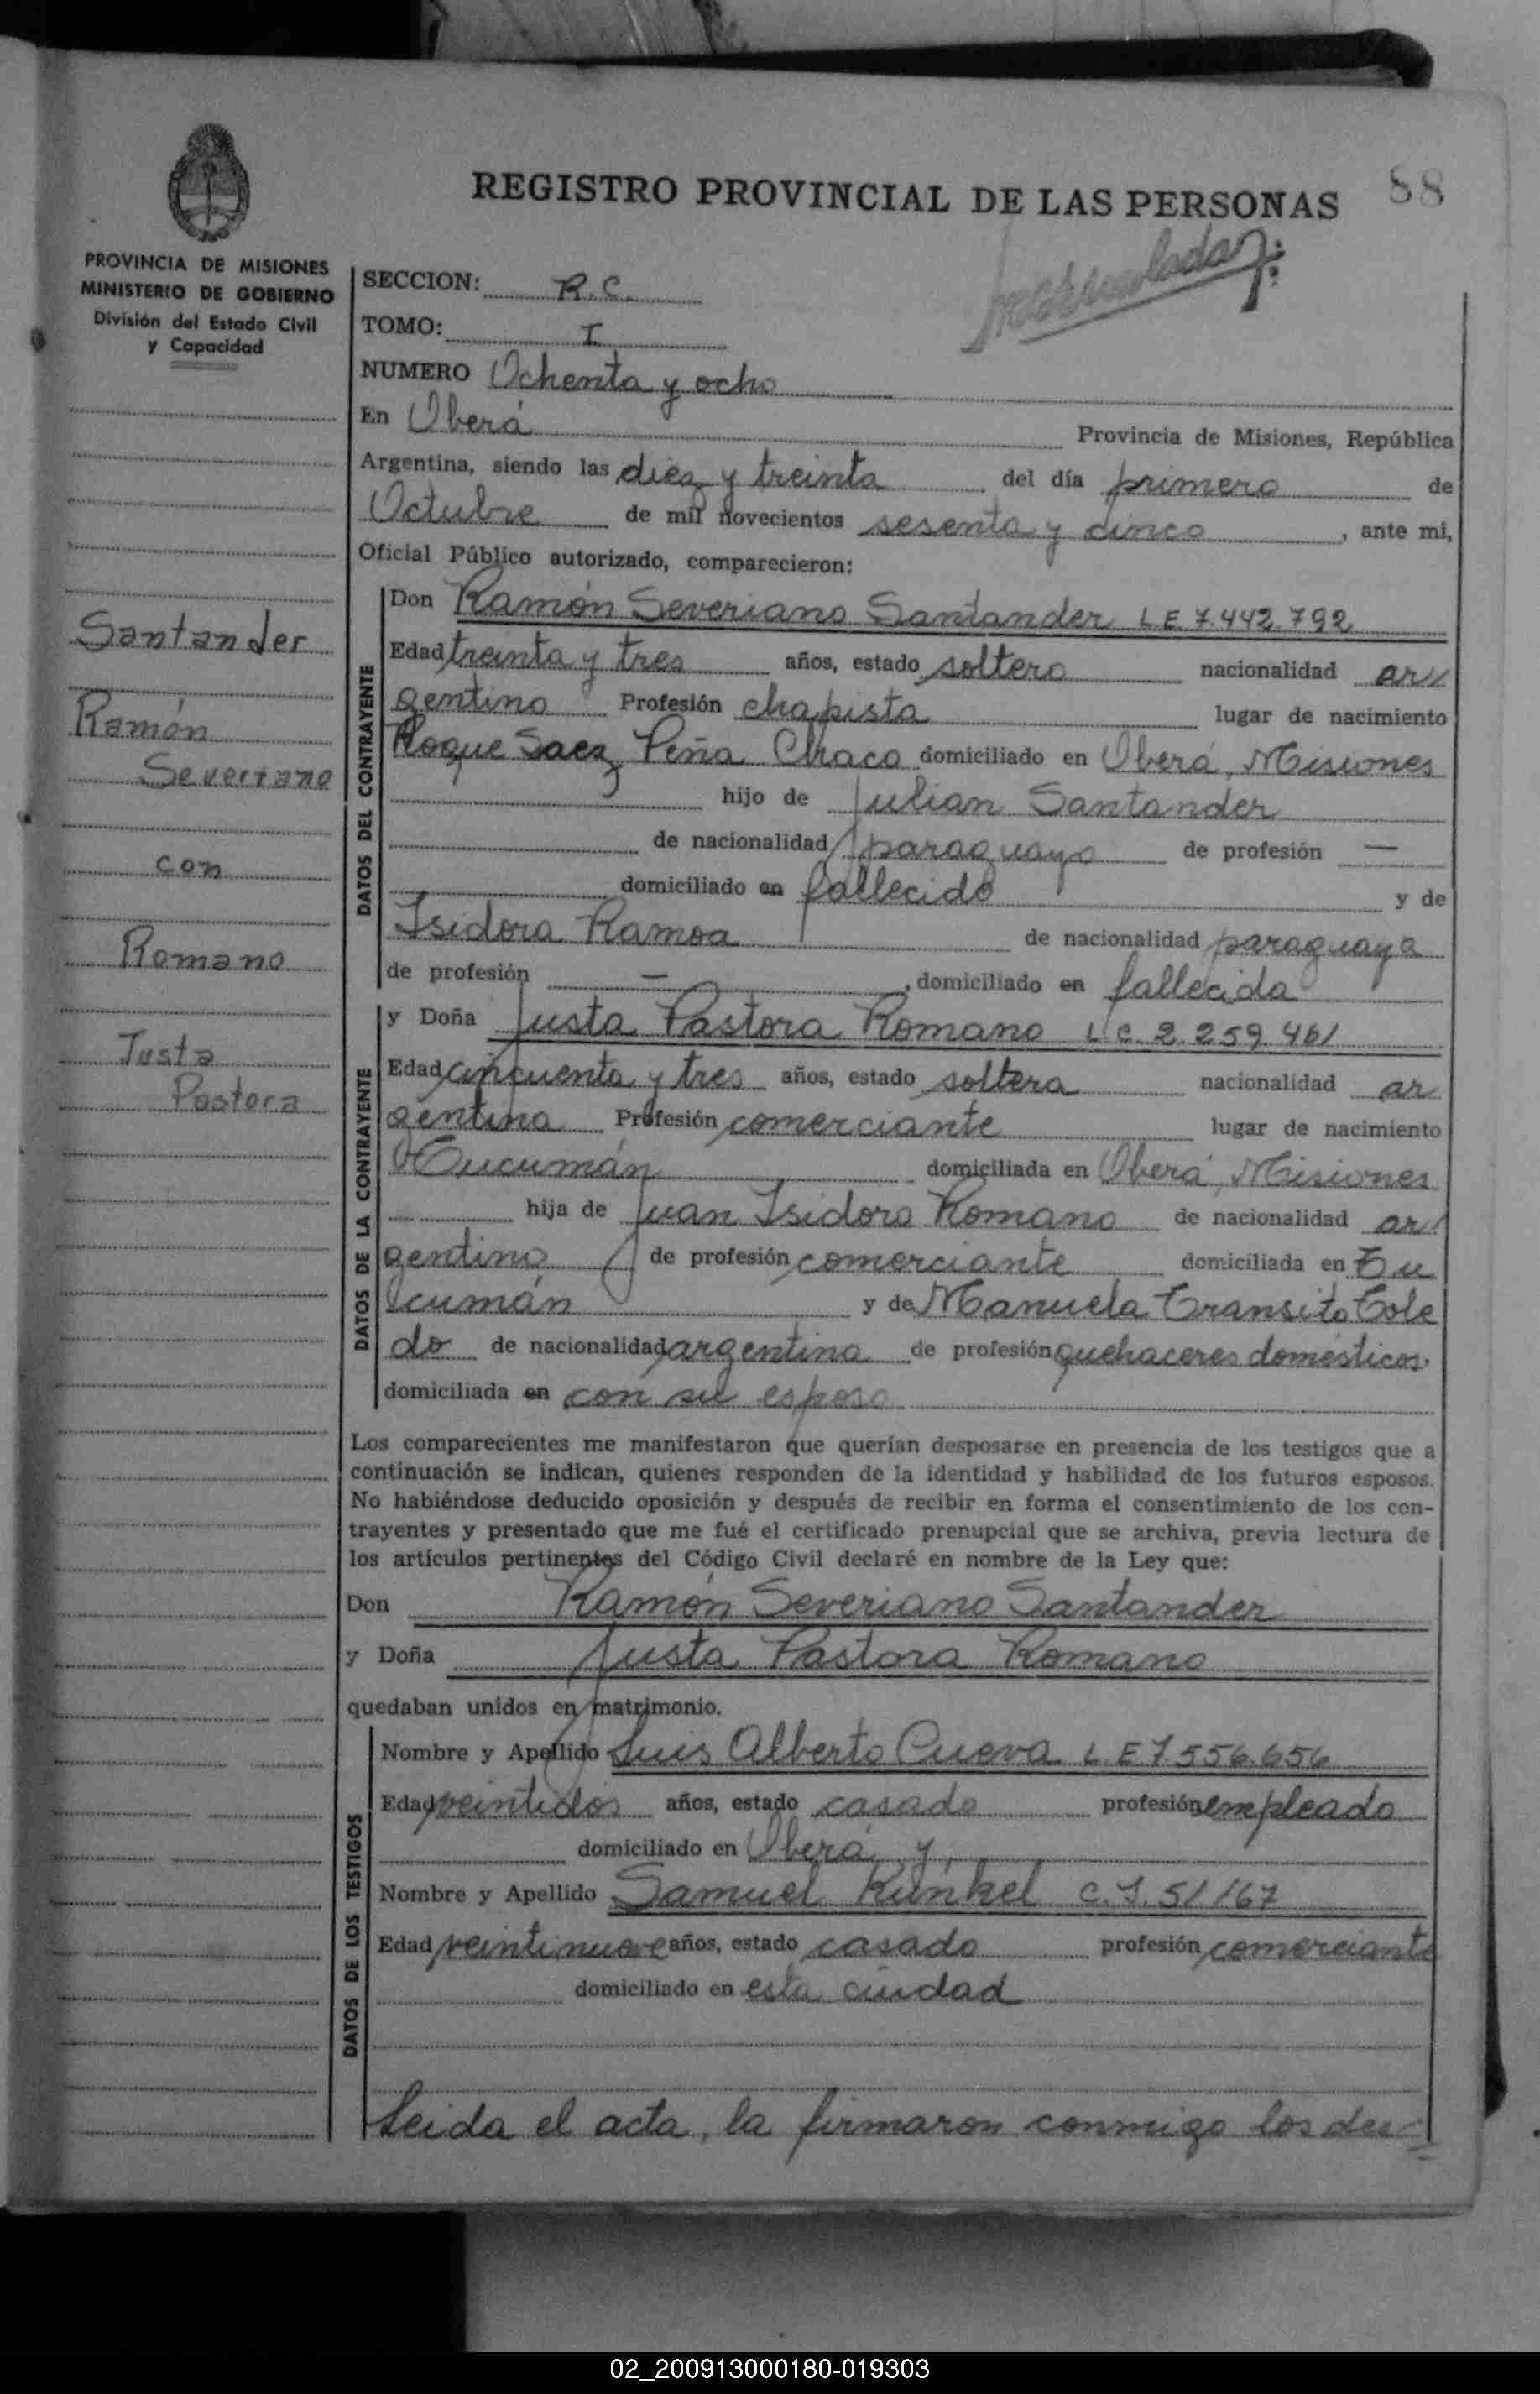 REGISTRO PROVINCIAL DE LAS PERSONAS
88
PROVINCIA DE MISIONES
MINISTERIO DE GOBIERNO
División del Estado Civil
y Capacidad
Santander
Ramón
Severiano
con
Romano
Justa
Pastora
SECCION: R.C.
TOMO: I
NUMERO Ochenta y ocho
En Oberá Provincia de Misiones, República
Argentina, siendo las diez y treinta del día primero de
Octubre de mil novecientos sesenta y cinco, ante mi,
Oficial Público autorizado, comparecieron:
DATOS DEL CONTRAYENTE
Don Ramón Severiano Santander L E 7.442.792
Edad treinta y tres años, estado soltero nacionalidad ar
gentino Profesión chapista lugar de nacimiento
Roque Saez Peña Chaco domiciliado en Oberá, Misiones
hijo de Julian Santander
de nacionalidad paraguayo de profesión —
domiciliado en fallecido y de
Isidora Ramoa de nacionalidad paraguaya
de profesión —, domiciliado en fallecida
DATOS DE LA CONTRAYENTE
y Doña Justa Pastora Romano L.C. 2.259.461
Edad cincuenta y tres años, estado soltera nacionalidad ar
gentina Profesión comerciante lugar de nacimiento
Tucumán domiciliada en Oberá, Misiones
hija de Juan Isidoro Romano de nacionalidad ar
gentino de profesión comerciante domiciliada en Tu
cumán y de Manuela Transito Tole
do de nacionalidad argentina de profesión quehaceres domésticos.
domiciliada en con su esposo
Los comparecientes me manifestaron que querían desposarse en presencia de los testigos que a
continuación se indican, quienes responden de la identidad y habilidad de los futuros esposos.
No habiéndose deducido oposición y después de recibir en forma el consentimiento de los con-
trayentes y presentado que me fué el certificado prenupcial que se archiva, previa lectura de
los artículos pertinentes del Código Civil declaré en nombre de la Ley que:
Don Ramón Severiano Santander
y Doña Justa Pastora Romano
quedaban unidos en matrimonio.
DATOS DE LOS TESTIGOS
Nombre y Apellido Luis Alberto Cueva L.E 7.556.656
Edad veintidos años, estado casado profesión empleado
domiciliado en Oberá y,
Nombre y Apellido Samuel Künkel C.I. 51167
Edad veintinueve años, estado casado profesión comerciante
domiciliado en esta ciudad
Leida el acta, la firmaron conmigo los de
02_200913000180-019303